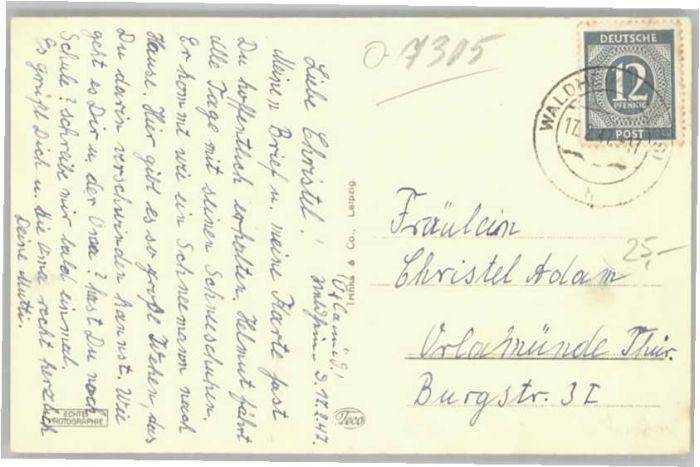 Liebe Christel!
Meinen Brief u. meine Karte hast
Du hoffentlich erhalten. Helmut fährt
alle Tage mit seinen Schneeschuhen.
Er kommt wie ein Schneemann nach
Hause. Hier gibt es so große
Du darin verschwinden kannst. Wie
geht es Dir u. der Oma? Hast Du noch
Schule? Schreibe mir bald einmal.
Es grüßt Dich u. die Oma recht herzlich
Deine Mutti.
17.2.47.
ECHTE
PHOTOGRAPHIE
Leipzig
Teco
7315
DEUTSCHE
12
PFENNIG
POST
WALDH
17
Fräulein
Christel Adam
25,-
Orlamünde Thür.
Burgstr. 3I